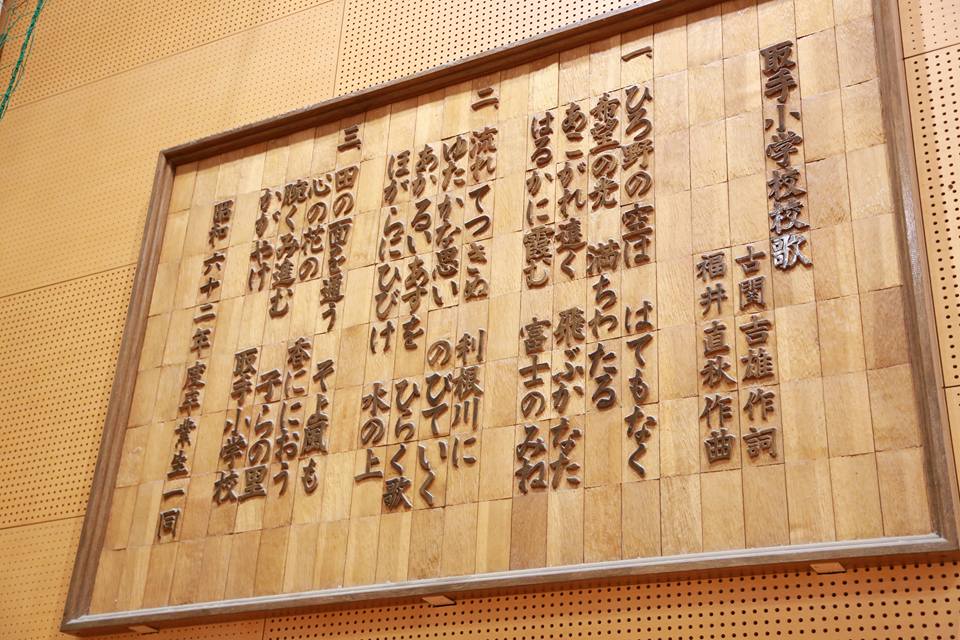 取手小学校校歌
古関吉雄作詞
福井直秋作曲
一、ひろ野の空は　はてもなく
希望の光　満ちわたる
あこがれ遠く　飛ぶかなた
はるかに霞む　富士のみね
二、流れてつきぬ　利根川に
ゆたかな思い　のびていく
あかるいあすを　ひらく歌
ほがらにひびけ　水の上
三、田の面を遠う　そよ風も
心の花の　香ににおう
腕くみ進む　子らの里
かがやけ　取手小学校
昭和六十二年度卒業生一同